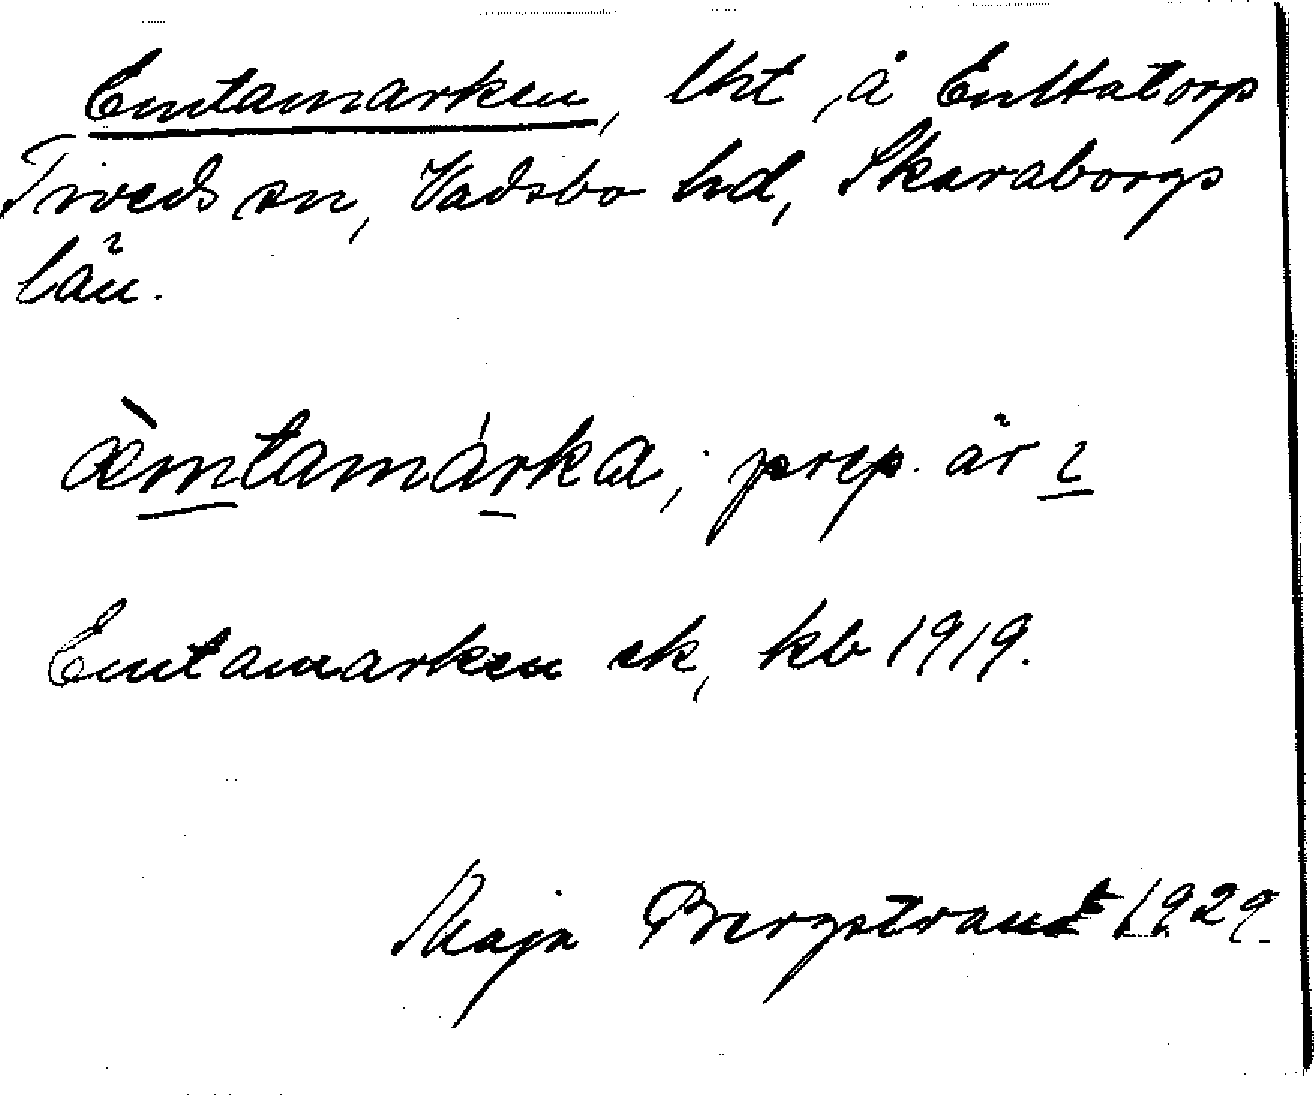 Emtamarken, lht, å Enttatorp
Tiveds sn, Vadsbo hd, Skaraborgs
län.
æ̀mtamárka; prep. är i
Emtamarken ek, kb 1919.
Maja Bergstrand 1929.